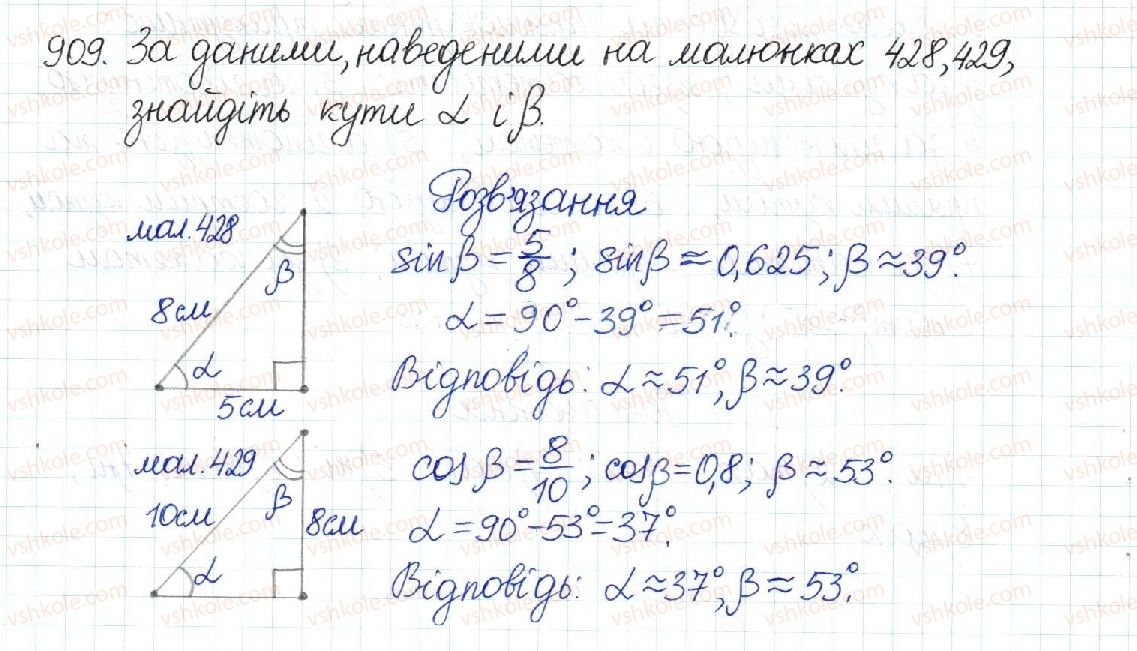 909. За даними, наведеними на малюнках 428, 429,
знайдіть кути α і β.
Розв'язання
мал. 428
β
8 см
α
5 см
sin β = 5/8 ; sin β ≈ 0,625; β ≈ 39°.
α = 90° - 39° = 51°.
Відповідь: α ≈ 51°, β ≈ 39°.
мал. 429
β
10 см
8 см
α
cos β = 8/10 ; cos β = 0,8; β ≈ 53°.
α = 90° - 53° = 37°.
Відповідь: α ≈ 37°, β ≈ 53°.
vshkole.com